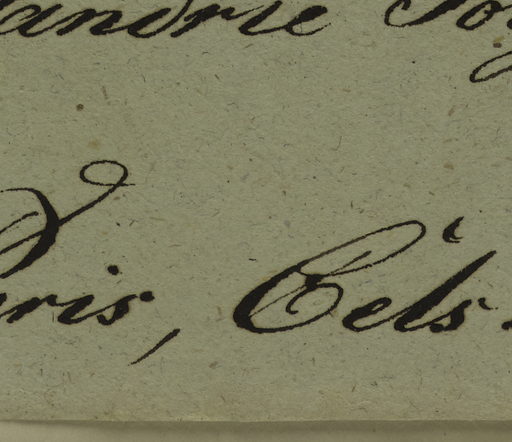 andrie
ris, Céls.